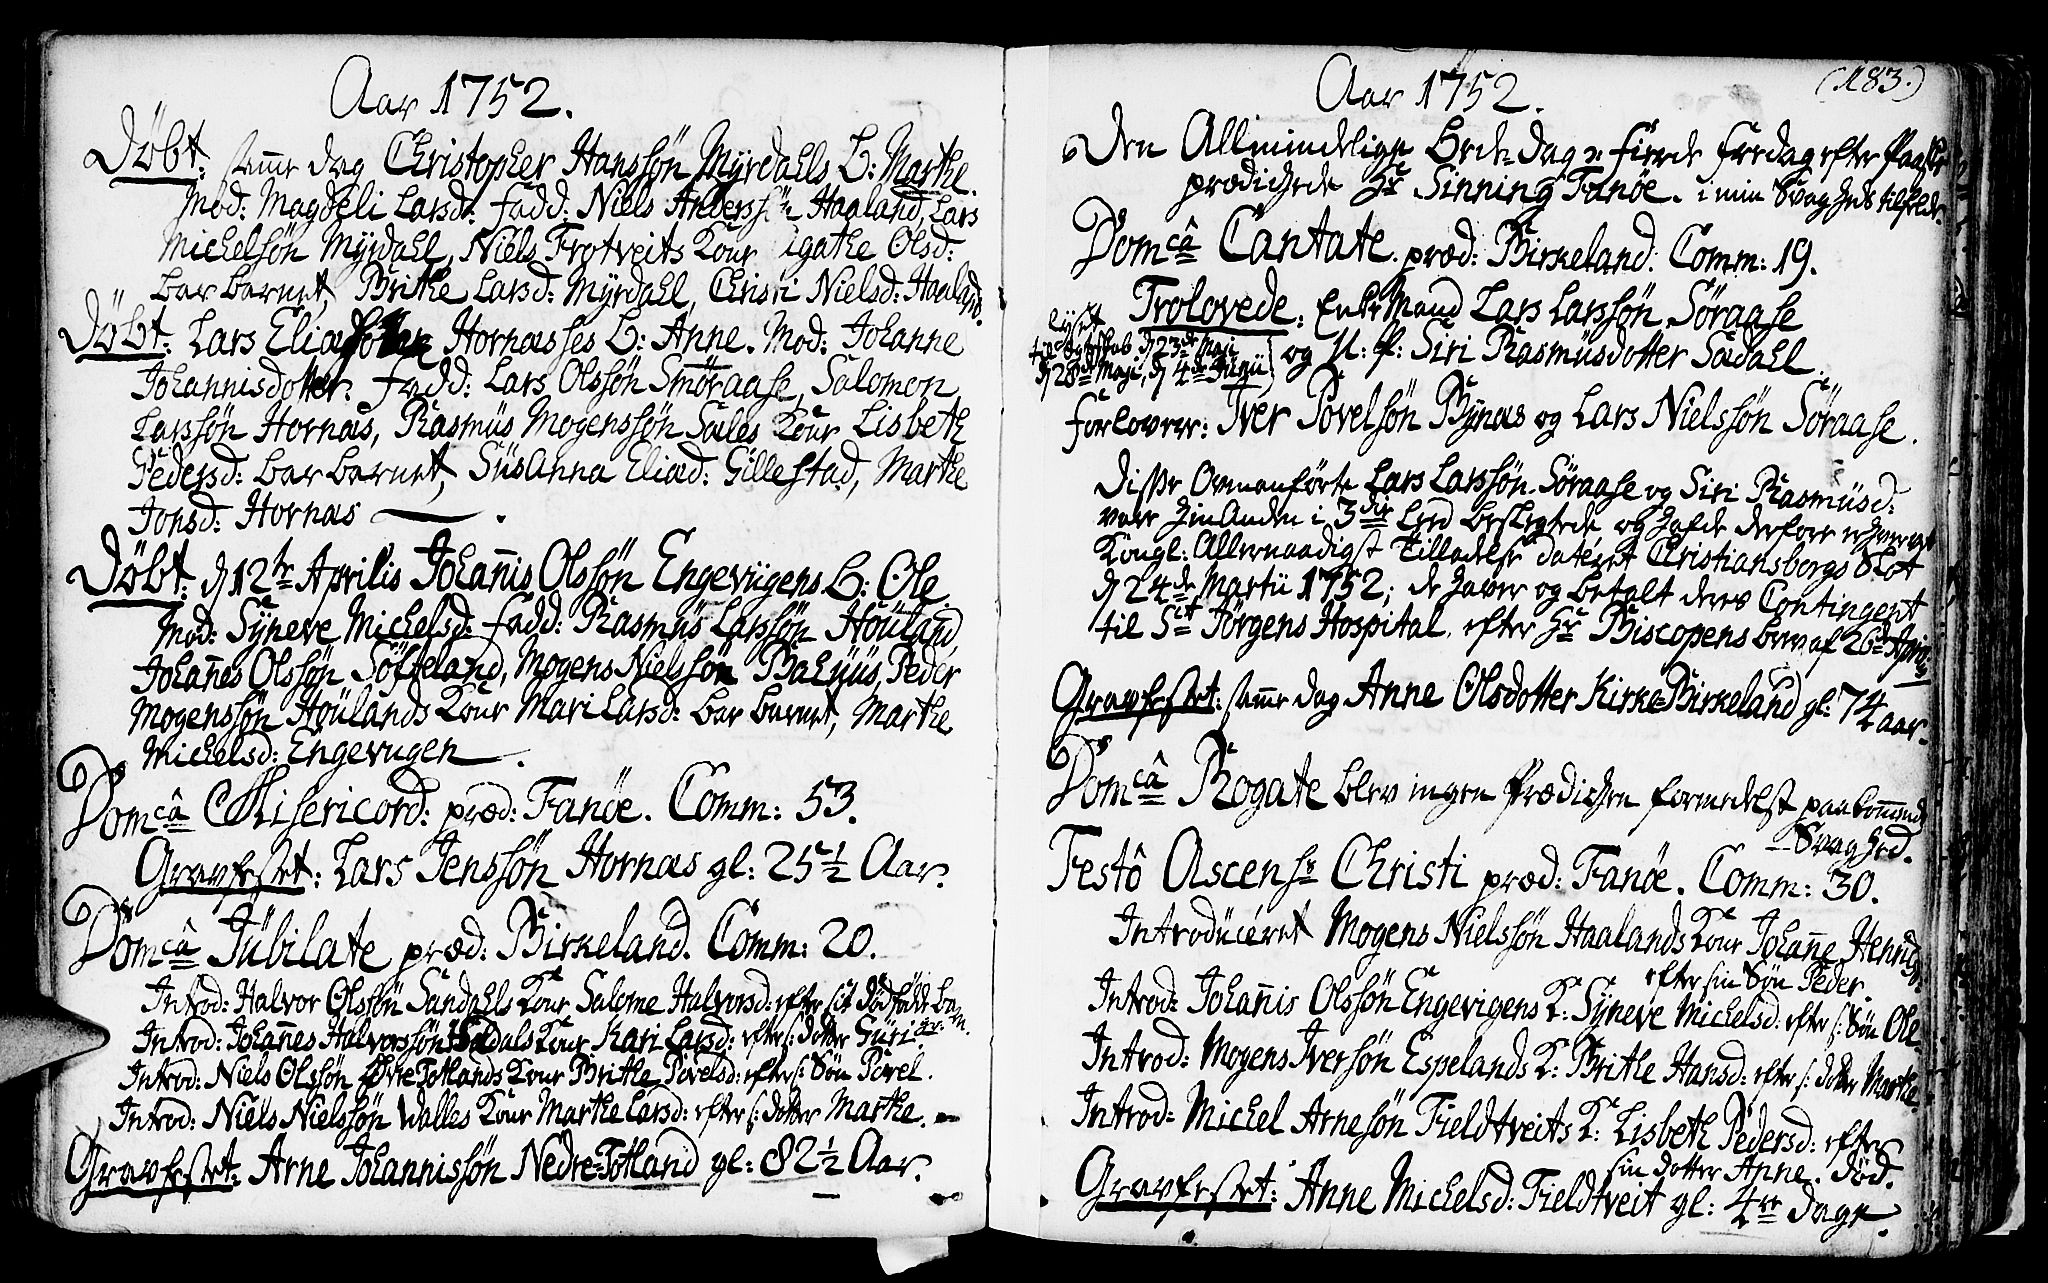 Aar 1752.
Döbt: samme dag Christopher Hanssön Myrdahls B: Marthe.
Mod: Magdeli Larsd: Fadd: Niels Anderssön Haaland, Lars
Michelsön Myrdahl, Niels Trotveits Kone Agathe Olsd:
bar barnet, Brithe Larsd: Myrdahl, Christi Nielsd: Haaland.
Döbt: Lars Hornæsses B: Anne. Mod: Johanne
Johannisdotter. Fadd: Lars Olssön Smöraase, Salomon
Larssön Hornæs, Rasmus Mogenssön Sæles Kone Lisbeth
Pedersd: bar barnet, Susanna Eliæd: Gillestad, Marthe
Jonsd: Hornæs.
Döbt: d 12te Aprilis Johannis Olssön Engevügens B: Ole
Mod: Syneve Michelsd: Fadd: Rasmus Larssön Höüland,
Johannes Olssön Söfteland, Mogens Nielssön Peder
Mogenssön Höülands Kone Mari Larsd: bar barnet, Marthe
Michelsd: Engevugen.
Domcâ Misericord: præd: Fanöe. Comm: 53.
Gravfestet: Lars Jenssön Hornæs gl: 25½ Aar.
Domcâ Jübilate præd: Birkeland. Comm: 20.
Introd: Halvor Olssön Sandahls Kone Salome Halvorsd: efter sit dödfödde barn.
Introd: Johannes Halvorssön Kone Kari Larsd: efter s: dotter Güri.
Introd: Niels Olssön Øvre Totlands Kone Brithe Povelsd: efter s: Søn Povel.
Introd: Niels Nielssön Walles Kone Marthe Larsd: efter s: dotter Marthe.
Gravfestet: Arne Johannissön Nedre=Totland gl: 82½ Aar.
Aar 1752. (183.)
Den Allmindelige Bededag den fierde fredag efter Paaske
prædichede Hr Sinning Fanöe. i min Svagheds tilfelde.
Domcâ Cantate. præd: Birkeland. Comm: 19.
Trolovede: Enke Mand Lars Larssön Söraase
lyst
d 23de Maji
og U: P: Siri Rasmusdotter Sædahl.
d 28de Maji, d 4de Junii
Forlovere: Iver Povelsön Bynæs og Lars Nielssön Söraase.
Disse Ovenanførte Lars Larssön Söraase og Siri Rasmusd:
vare hinanden i 3die Leed beslegtede og hafde derfore erhvervet
Kongl: Allernaadigst Tilladelse dateret Christiansborgs Slot
d 24de Martii 1752; de haver og betalt deres Contingent
til St Jörgens Hospital, efter Hr Biscopens brev af 26de Aprilis
Gravfestet: samme dag Anne Olsdotter Kirke=Birkeland gl: 74 aar.
Domcâ Rogate blev ingen Prædichen formedelst paakommende
Svaghed.
Festô Ascens: Christi præd: Fanöe. Comm: 30.
Introduceret Mogens Nielssön Haalands Kone Johanne
efter sin Søn Peder.
Introd: Johannis Olssön Engevigens K: Syneve Michelsd: efter s: Søn Ole.
Introd: Mogens Iversön Espelands K: Brithe Hansd: efter s: dotter Marthe.
Introd: Michel Arnesön Fieldtveits K: Lisbeth Pedersd: efter
sin dotter Anne. død.
Gravfestet: Anne Michelsd: Fieldtveit gl: 4re dage.